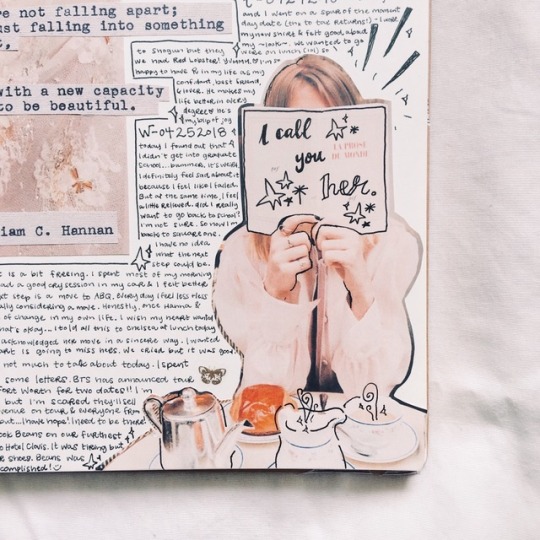 re not falling apart;
ust falling into something
with a new capacity
to be beautiful.
iam C. Hannan
and I went on a spur of the moment
day date (thx to tax returns!). I wore
my new shirt & felt good about
my look. We wanted to go
to Shogun but they
we had Red Lobster!
happy to have in my life as my
confidant, best friend,
& lover. He makes my
life better in every
degree He's
my bff of joy
W-04252018
today I found out that
I didn't get into graduate
school...bummer. It's weird
I definitely feel sad about it
because I feel like I failed.
But at the same time, I feel
a little relieved. Did I really
want to go back to school?
I'm not sure. So now I'm
back to square one.
I have no idea
what the next
step could be.
t is a bit freeing. I spent most of my morning
ad a good cry session in my car & I felt better
xt step is a move to ABQ. Everyday I feel less & less
ally considering a move. Honestly, once Hanna &
of change in my own life. I wish my heart wanted
hat's okay... I told all this to Chelsea at lunch today
acknowledged her move in a sincere way. I wanted
art is going to miss her. We cried but it was good
not much to talk about today. I spent
some letters. BTS has announced tour
Fort Worth for two dates!! I'm
but I'm scared they'll sell
venue on tour & everyone from
but...I have hope! I need to be there!
ook Beans on our furthest
to Hotel Clovis. It was tiring but
Beans was
complished!
I call
you
LA PROSE
DU MONDE
her.